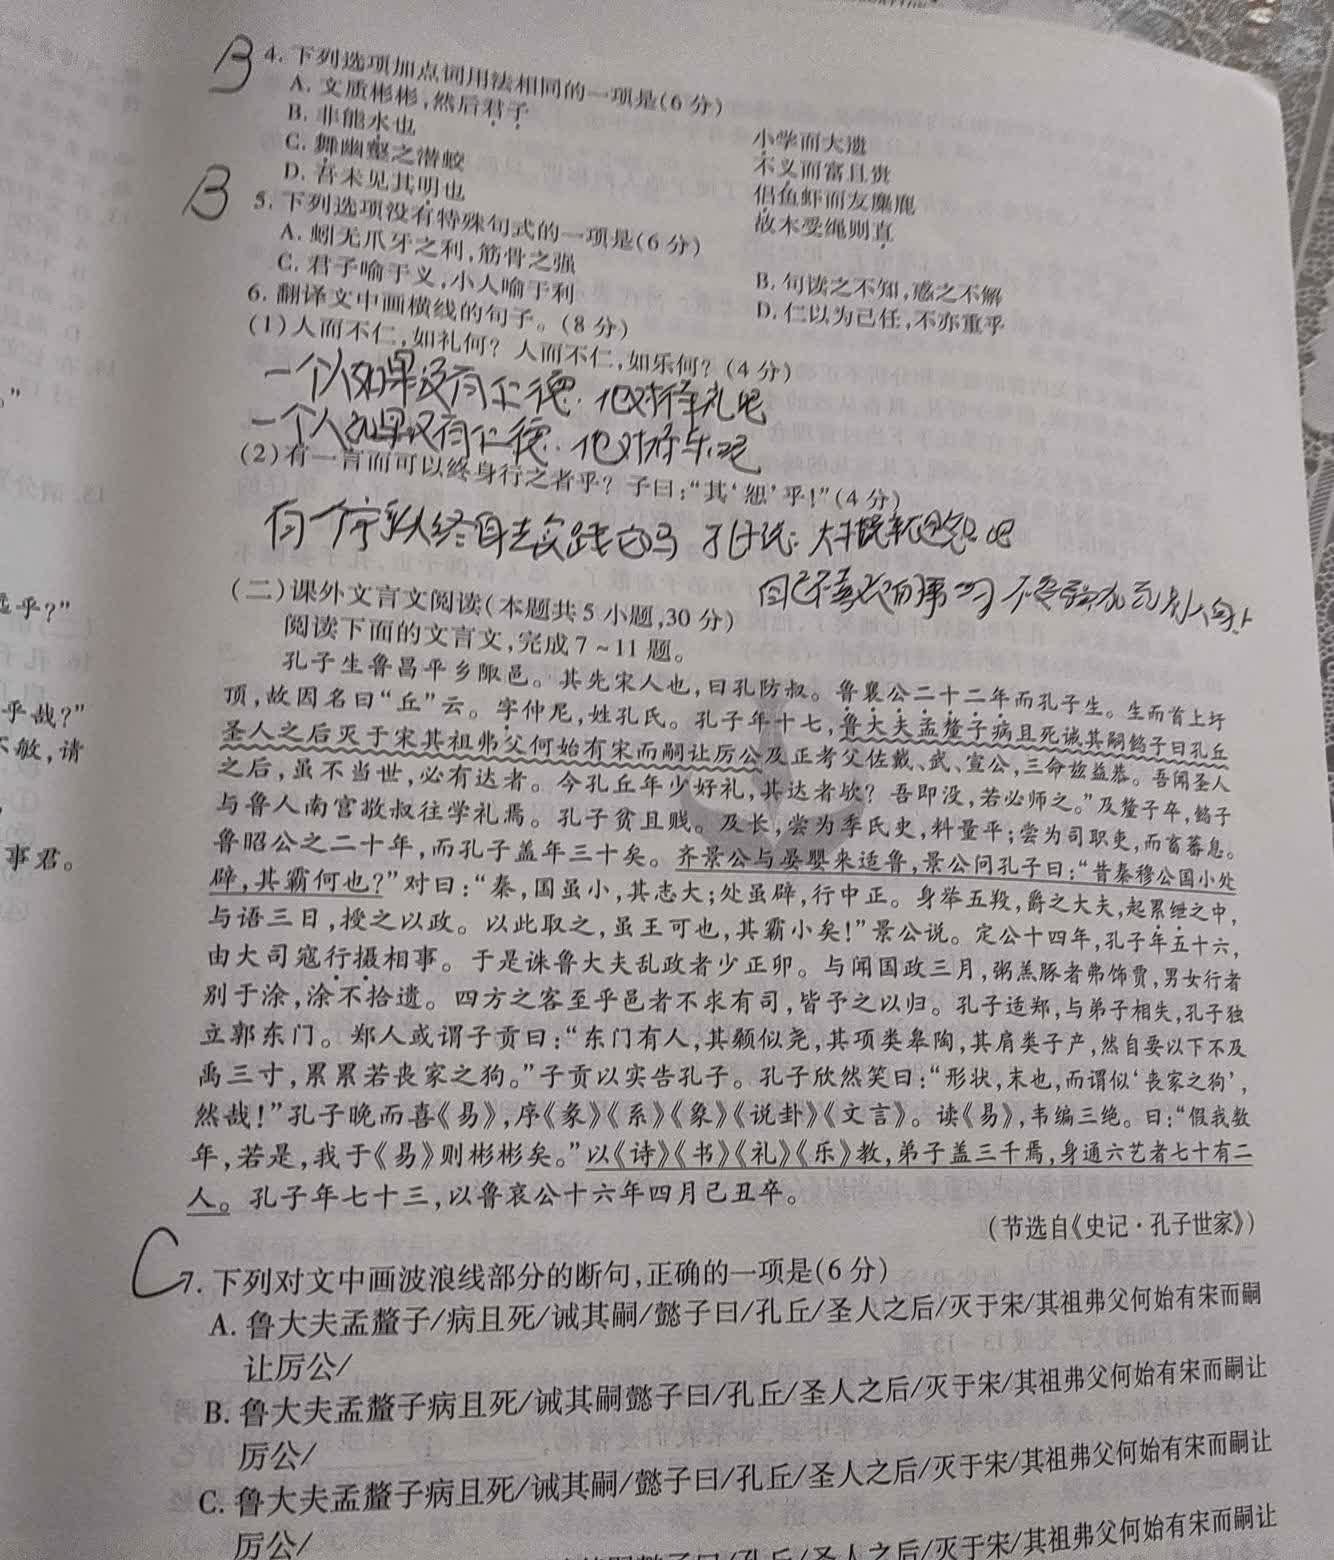 B 4. 下列选项加点词用法相同的一项是(6分)
A. 文质彬彬,然后君子 小学而大遗
B. 非能水也 不义而富且贵
C. 舞幽壑之潜蛟 侣鱼虾而友麋鹿
D. 吾未见其明也 故木受绳则直
B 5. 下列选项没有特殊句式的一项是(6分)
A. 蚓无爪牙之利,筋骨之强 B. 句读之不知,惑之不解
C. 君子喻于义,小人喻于利 D. 仁以为己任,不亦重乎
6. 翻译文中画横线的句子。(8分)
(1)人而不仁,如礼何?人而不仁,如乐何?(4分)
一个人如果没有仁德.他对待礼呢
一个人如果没有仁德.他对待乐呢
(2)有一言而可以终身行之者乎?子曰:“其‘恕’乎!”(4分)
有一个字可以终身去实践它吗 孔子说:大概就是恕吧
自己不喜欢的事
(二)课外文言文阅读(本题共5小题,30分)
阅读下面的文言文,完成7~11题。
孔子生鲁昌平乡陬邑。其先宋人也,曰孔防叔。鲁襄公二十二年而孔子生。生而首上圩
顶,故因名曰“丘”云。字仲尼,姓孔氏。孔子年十七,鲁大夫孟釐子病且死诫其嗣懿子曰孔丘
圣人之后灭于宋其祖弗父何始有宋而嗣让厉公及正考父佐戴、武、宣公,三命兹益恭。吾闻圣人
之后,虽不当世,必有达者。今孔丘年少好礼,其达者欤?吾即没,若必师之。”及釐子卒,懿子
与鲁人南宫敬叔往学礼焉。孔子贫且贱。及长,尝为季氏史,料量平;尝为司职吏,而畜蕃息。
鲁昭公之二十年,而孔子盖年三十矣。齐景公与晏婴来适鲁,景公问孔子曰:“昔秦穆公国小处
辟,其霸何也?”对曰:“秦,国虽小,其志大;处虽辟,行中正。身举五羖,爵之大夫,起累绁之中,
与语三日,授之以政。以此取之,虽王可也,其霸小矣!”景公说。定公十四年,孔子年五十六,
由大司寇行摄相事。于是诛鲁大夫乱政者少正卯。与闻国政三月,粥羔豚者弗饰贾,男女行者
别于涂,涂不拾遗。四方之客至乎邑者不求有司,皆予之以归。孔子适郑,与弟子相失,孔子独
立郭东门。郑人或谓子贡曰:“东门有人,其颡似尧,其项类皋陶,其肩类子产,然自要以下不及
禹三寸,累累若丧家之狗。”子贡以实告孔子。孔子欣然笑曰:“形状,末也,而谓似‘丧家之狗’,
然哉!”孔子晚而喜《易》,序《彖》《系》《象》《说卦》《文言》。读《易》,韦编三绝。曰:“假我数
年,若是,我于《易》则彬彬矣。”以《诗》《书》《礼》《乐》教,弟子盖三千焉,身通六艺者七十有二
人。孔子年七十三,以鲁哀公十六年四月己丑卒。
(节选自《史记·孔子世家》)
C 7. 下列对文中画波浪线部分的断句,正确的一项是(6分)
A. 鲁大夫孟釐子/病且死/诫其嗣/懿子曰/孔丘/圣人之后/灭于宋/其祖弗父何始有宋而嗣
让厉公/
B. 鲁大夫孟釐子病且死/诫其嗣懿子曰/孔丘/圣人之后/灭于宋/其祖弗父何始有宋而嗣让
厉公/
C. 鲁大夫孟釐子病且死/诫其嗣/懿子曰/孔丘/圣人之后/灭于宋/其祖弗父何始有宋而嗣让
厉公/
懿子曰/孔丘/圣人之后/灭于宋/其祖弗父何始有宋而嗣让
远乎?”
乎哉?”
不敏,请
事君。